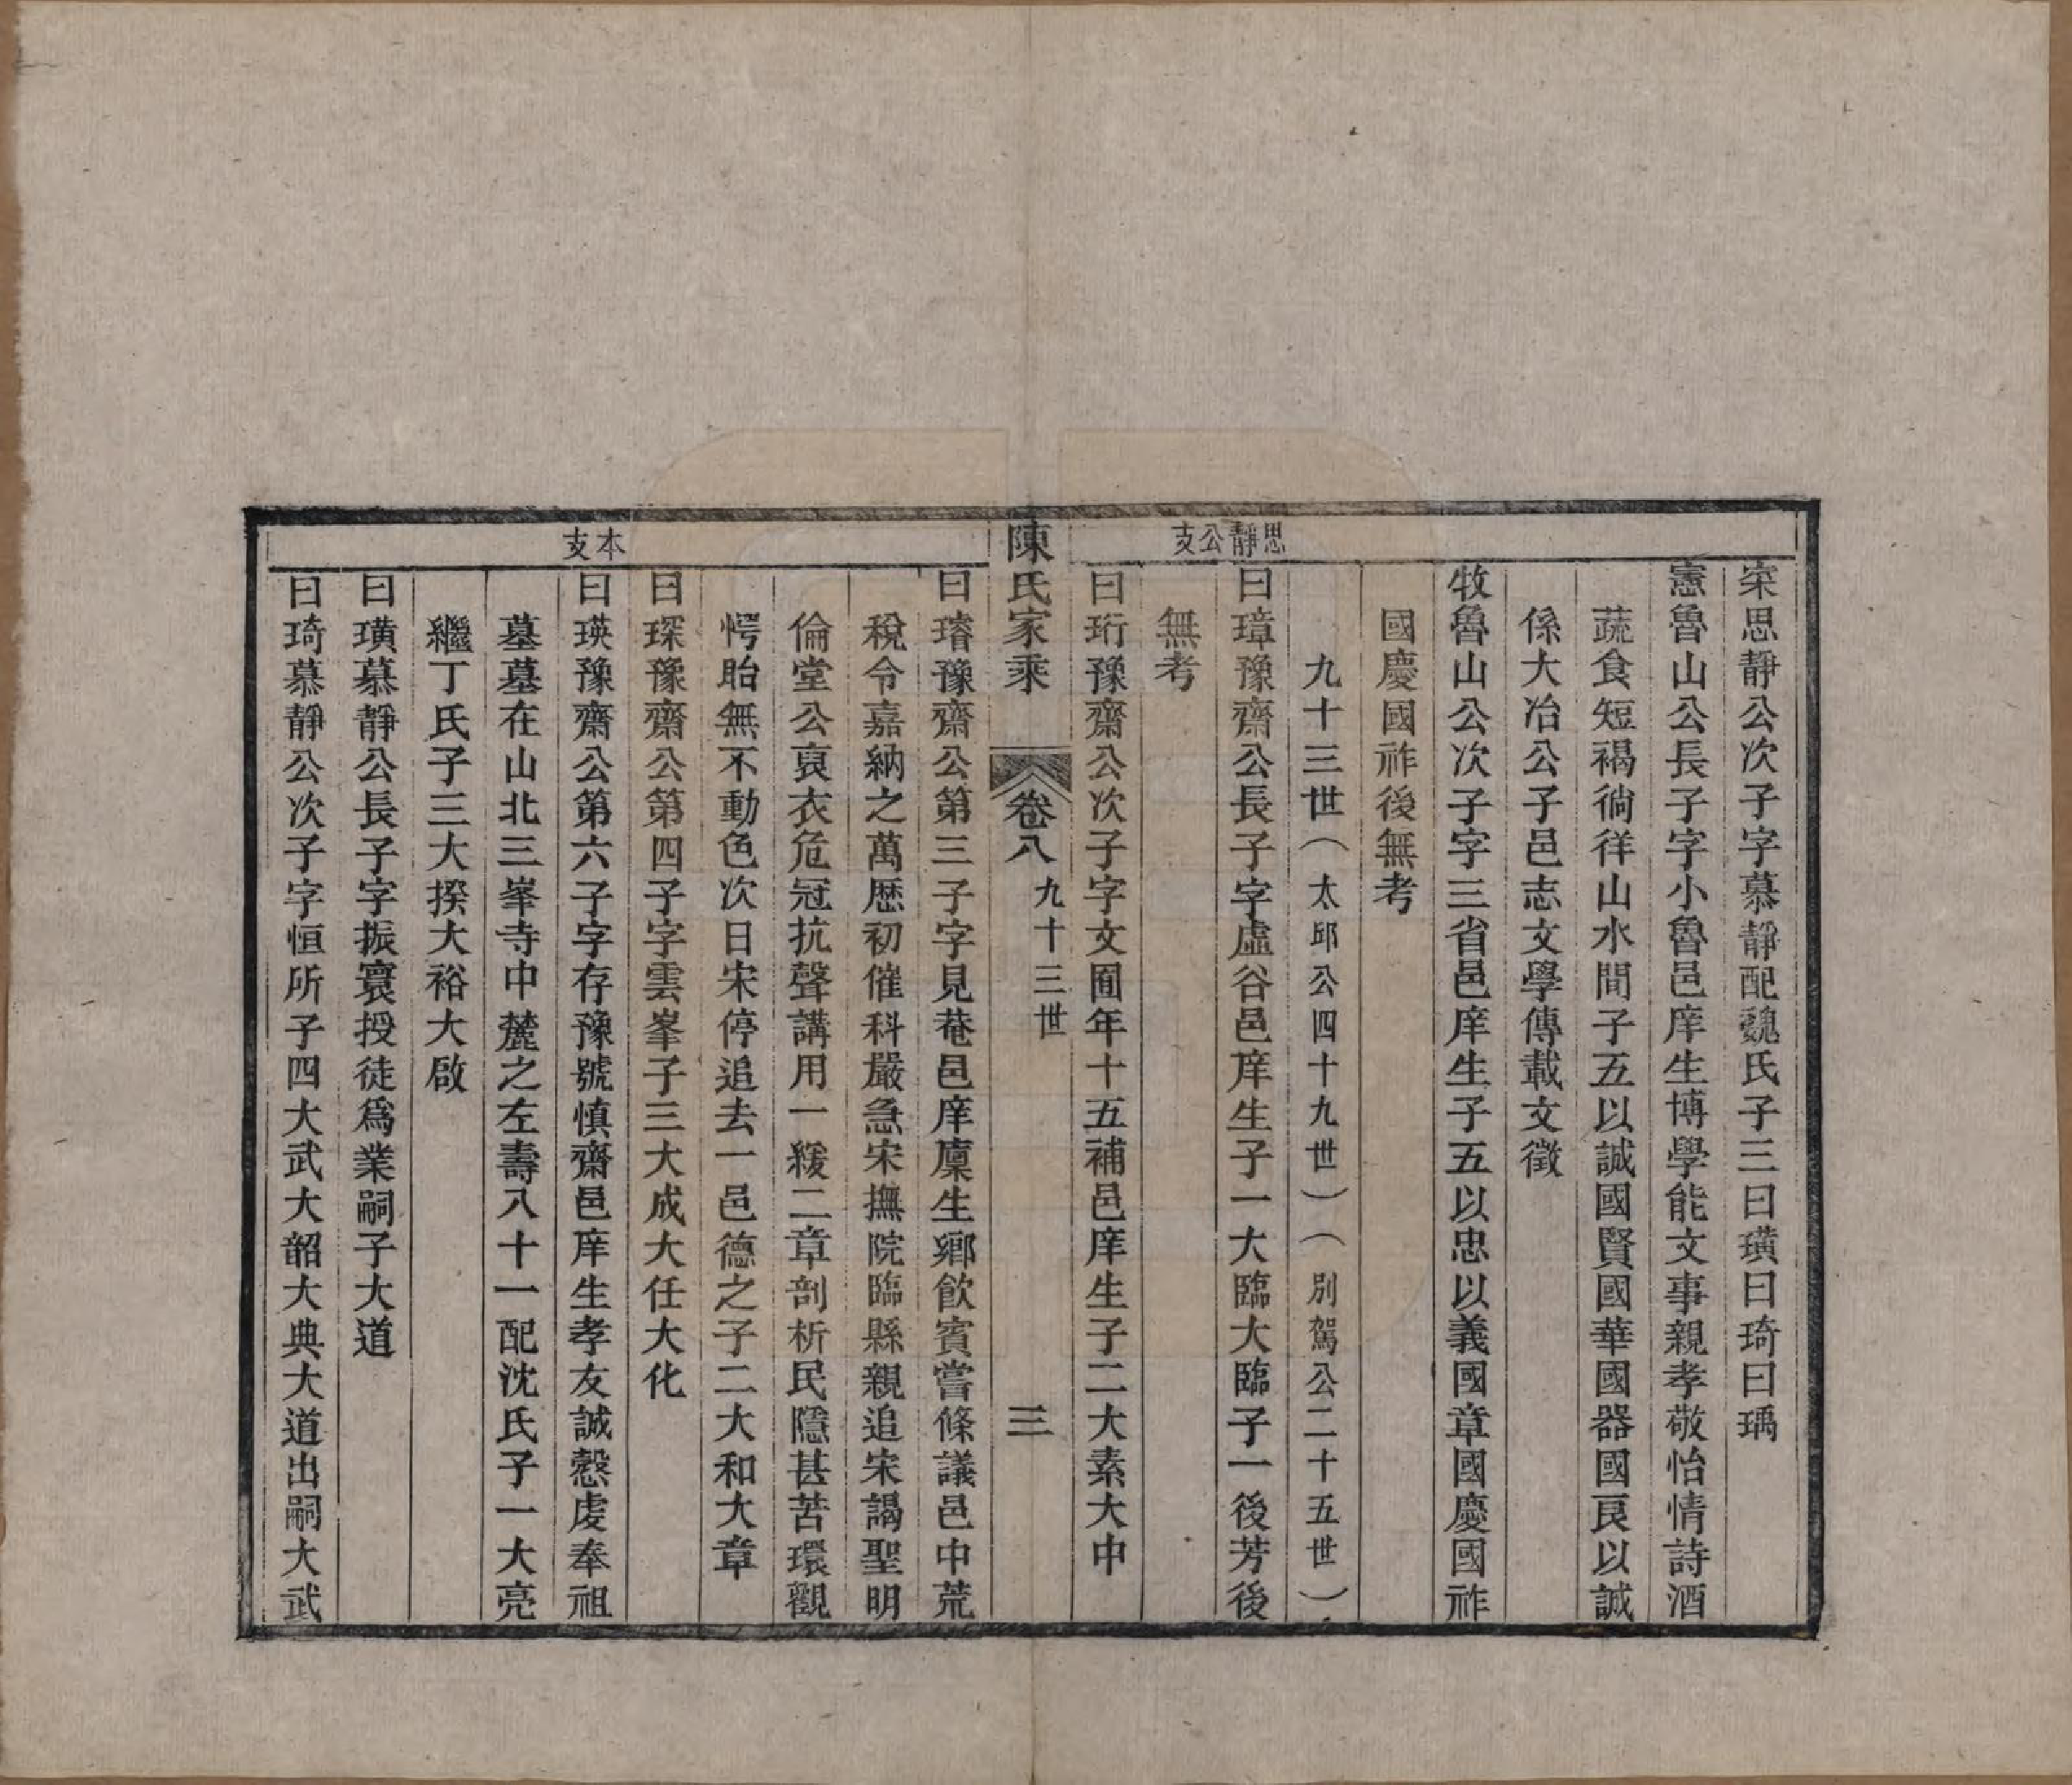 思靜公支
寀思靜公次子字慕靜配魏氏子三曰璜曰琦曰瑀
憲魯山公長子字小魯邑庠生博學能文事親孝敬怡情詩酒
蔬食短褐徜徉山水間子五以誠國賢國華國器國良以誠
係大冶公子邑志文學傳載文徵
牧魯山公次子字三省邑庠生子五以忠以義國章國慶國祚
國慶國祚後無考
九十三世（太邱公四十九世）（別駕公二十五世）
曰璋豫齋公長子字虛谷邑庠生子一大臨大臨子一後芳後
無考
曰珩豫齋公次子字文囿年十五補邑庠生子二大素大中
陳氏家乘
卷八
九十三世
三
本支
曰璿豫齋公第三子字見菴邑庠廩生鄉飲賓嘗條議邑中荒
稅令嘉納之萬歷初催科嚴急宋撫院臨縣親追宋謁聖明
倫堂公裒衣危冠抗聲講用一緩二章剖析民隱甚苦環觀
愕眙無不動色次日宋停追去一邑德之子二大和大章
曰琛豫齋公第四子字雲峯子三大成大任大化
曰瑛豫齋公第六子字存豫號慎齋邑庠生孝友誠慤虔奉祖
墓墓在山北三峯寺中麓之左壽八十一配沈氏子一大亮
繼丁氏子三大揆大裕大啟
曰璜慕靜公長子字振寰授徒爲業嗣子大道
曰琦慕靜公次子字恒所子四大武大韶大典大道出嗣大武